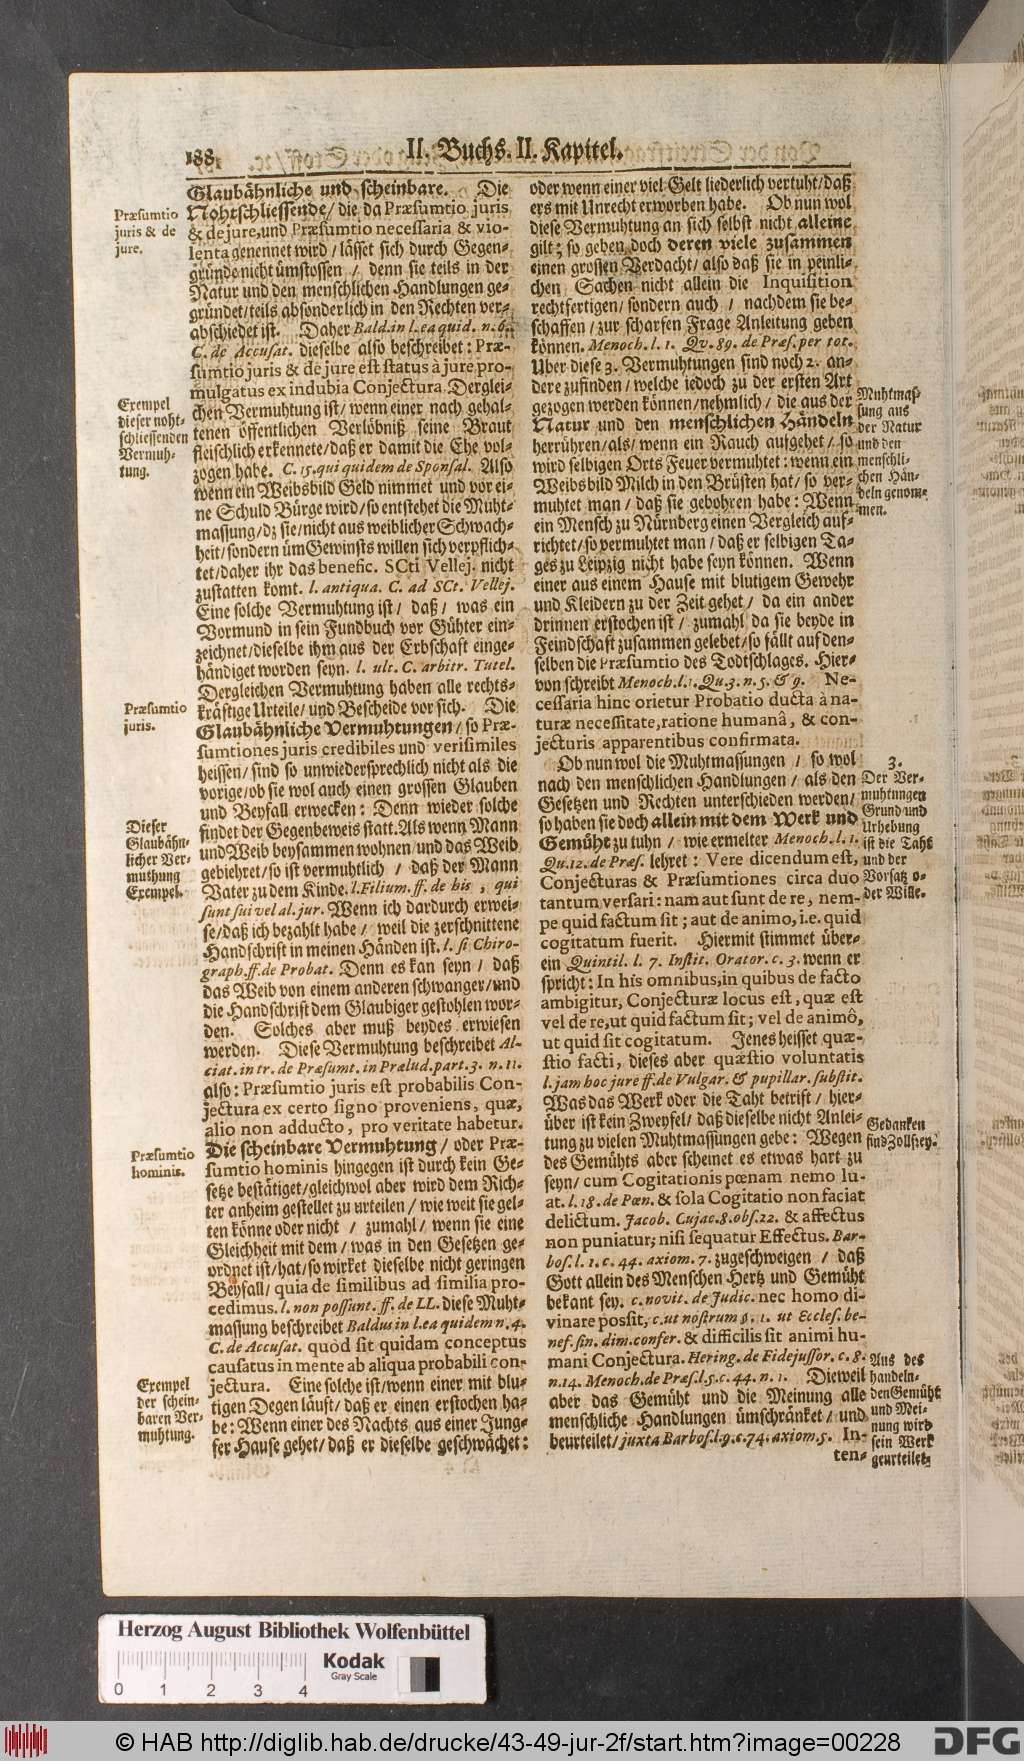 188 II. Buchs. II. Kapitel.
Glaubähnliche und scheinbare. Die
Præsumtio
juris & de
jure.
Nohtschliessende/ die da Præsumtio juris
& de jure, und Præsumtio necessaria & vio-
lenta genennet wird / lässet sich durch Gegen-
gründe nicht ümstossen / denn sie teils in der
Natur und den menschlichen Handlungen ge-
gründet/ teils absonderlich in den Rechten ver-
abschiedet ist. Daher Bald. in l. ea quid. n. 6.
C. de Accusat. dieselbe also beschreibet: Præ-
sumtio juris & de jure est status à jure pro-
mulgatus ex indubia Conjectura. Derglei-
Exempel
dieser noht-
schliessenden
Vermuh-
tung.
chen Vermuhtung ist/ wenn einer nach gehal-
tenen öffentlichen Verlöbniß seine Braut
fleischlich erkennete/ daß er damit die Ehe vol-
zogen habe. C. 15. qui quidem de Sponsal. Also
wenn ein Weibsbild Geld nimmet und vor ei-
ne Schuld Bürge wird/ so entstehet die Muht-
massung/ dz sie/ nicht aus weiblicher Schwach-
heit/ sondern üm Gewinsts willen sich verpflich-
tet/ daher ihr das benefic. SCti Vellej. nicht
zustatten komt. l. antiqua. C. ad SCt. Vellej.
Eine solche Vermuhtung ist / daß / was ein
Vormund in sein Fundbuch vor Gühter ein-
zeichnet/ dieselbe ihm aus der Erbschaft einge-
händiget worden seyn. l. ult. C. arbitr. Tutel.
Dergleichen Vermuhtung haben alle rechts-
Præsumtio
juris.
kräftige Urteile/ und Bescheide vor sich. Die
Glaubähnliche Vermuhtungen/ so Præ-
sumtiones juris credibiles und verisimiles
heissen/ sind so unwiedersprechlich nicht als die
vorige/ ob sie wol auch einen grossen Glauben
und Beyfall erwecken: Denn wieder solche
Dieser
Glaubähn-
licher Ver-
muthung
Exempel.
findet der Gegenbeweis statt. Als wenn Mann
und Weib beysammen wohnen/ und das Weib
gebiehret/ so ist vermuhtlich / daß der Mann
Vater zu dem Kinde. l. Filium. ff. de his, qui
sunt sui vel al. jur. Wenn ich dardurch erwei-
se/ daß ich bezahlt habe / weil die zerschnittene
Handschrift in meinen Händen ist. l. si Chiro-
graph. ff. de Probat. Denn es kan seyn / daß
das Weib von einem anderen schwanger/ und
die Handschrift dem Glaubiger gestohlen wor-
den. Solches aber muß beydes erwiesen
werden. Diese Vermuhtung beschreibet Al-
ciat. in tr. de Præsumt. in Prælud. part. 3. n. 11.
also: Præsumtio juris est probabilis Con-
jectura ex certo signo proveniens, quæ,
alio non adducto, pro veritate habetur.
Præsumtio
hominis.
Die scheinbare Vermuhtung / oder Præ-
sumtio hominis hingegen ist durch kein Ge-
setze bestätiget/ gleichwol aber wird dem Rich-
ter anheim gestellet zu urteilen / wie weit sie gel-
ten könne oder nicht / zumahl / wenn sie eine
Gleichheit mit dem / was in den Gesetzen ge-
ordnet ist/ hat/ so wirket dieselbe nicht geringen
Beyfall/ quia de similibus ad similia pro-
cedimus. l. non possunt. ff. de LL. diese Muht-
massung beschreibet Baldus in l. ea quidem n. 4.
C. de Accusat. quòd sit quidam conceptus
causatus in mente ab aliqua probabili con-
Exempel
der schein-
baren Ver-
muhtung.
jectura. Eine solche ist/ wenn einer mit blu-
tigen Degen läuft/ daß er einen erstochen ha-
be: Wenn einer des Nachts aus einer Jung-
fer Hause gehet/ daß er dieselbe geschwächet:
oder wenn einer viel Gelt liederlich vertuht/ daß
ers mit Unrecht erworben habe. Ob nun wol
diese Vermuhtung an sich selbst nicht alleine
gilt; so geben doch deren viele zusammen
einen grossen Verdacht/ also daß sie in peinli-
chen Sachen nicht allein die Inquisition
rechtfertigen/ sondern auch / nachdem sie be-
schaffen / zur scharfen Frage Anleitung geben
können. Menoch. l. 1. Qv. 89. de Præs. per tot.
Uber diese 3. Vermuhtungen sind noch 2. an-
dere zufinden / welche iedoch zu der ersten Art
Muhtmas-
sung aus
der Natur
und den
menschli-
chen Hän-
deln genom-
men.
gezogen werden können/ nehmlich / die aus der
Natur und den menschlichen Händeln
herrühren/ als/ wenn ein Rauch aufgehet / so
wird selbigen Orts Feuer vermuhtet: wenn ein
Weibsbild Milch in den Brüsten hat/ so ver-
muhtet man / daß sie gebohren habe: Wenn
ein Mensch zu Nürnberg einen Vergleich auf-
richtet/ so vermuhtet man / daß er selbigen Ta-
ges zu Leipzig nicht habe seyn können. Wenn
einer aus einem Hause mit blutigem Gewehr
und Kleidern zu der Zeit gehet / da ein ander
drinnen erstochen ist / zumahl da sie beyde in
Feindschaft zusammen gelebet/ so fällt auf den-
selben die Præsumtio des Todtschlages. Hier-
von schreibt Menoch. l. 1. Qu. 3. n. 5. & 9. Ne-
cessaria hinc orietur Probatio ducta à na-
turæ necessitate, ratione humanâ, & con-
jecturis apparentibus confirmata.
3.
Der Ver-
muhtungen
Grund und
Urhebung
ist die Taht
und der
Vorsatz o-
der Wille.
Ob nun wol die Muhtmassungen / so wol
nach den menschlichen Handlungen / als den
Gesetzen und Rechten unterschieden werden/
so haben sie doch allein mit dem Werk und
Gemüht zu tuhn / wie ermelter Menoch. l. 1.
Qu. 12. de Præs. lehret: Vere dicendum est,
Conjecturas & Præsumtiones circa duo
tantum versari: nam aut sunt de re, nem-
pe quid factum sit; aut de animo, i.e. quid
cogitatum fuerit. Hiermit stimmet über-
ein Quintil. l. 7. Instit. Orator. c. 3. wenn er
spricht: In his omnibus, in quibus de facto
ambigitur, Conjecturæ locus est, quæ est
vel de re, ut quid factum sit; vel de animô,
ut quid sit cogitatum. Jenes heisset quæ-
stio facti, dieses aber quæstio voluntatis
l. jam hoc jure ff. de Vulgar. & pupillar. substit.
Was das Werk oder die Taht betrift / hier-
Gedanken
sind Zollfrey.
über ist kein Zweyfel/ daß dieselbe nicht Anlei-
tung zu vielen Muhtmassungen gebe: Wegen
des Gemühts aber scheinet es etwas hart zu
seyn/ cum Cogitationis pœnam nemo lu-
at. l. 18. de Pœn. & sola Cogitatio non faciat
delictum. Jacob. Cujac. 8. obs. 22. & affectus
non puniatur; nisi sequatur Effectus. Bar-
bos. l. 1. c. 44. axiom. 7. zugeschweigen / daß
Gott allein des Menschen Hertz und Gemüht
bekant sey. c. novit. de Judic. nec homo di-
vinare possit, c. ut nostrum §. 1. ut Eccles. be-
nef. sin. dim. confer. & difficilis sit animi hu-
mani Conjectura. Hering. de Fidejussor. c. 8.
Aus des
handeln-
den Gemüht
und Mei-
nung wird
sein Werk
geurteilet.
n. 14. Menoch. de Præs. l. 5. c. 44. n. 1. Dieweil
aber das Gemüht und die Meinung alle
menschliche Handlungen ümschränket / und
beurteilet/ juxta Barbos. l. 9. c. 74. axiom. 5. In-
ten-
Herzog August Bibliothek Wolfenbüttel
Kodak
Gray Scale
0 1 2 3 4
© HAB http://diglib.hab.de/drucke/43-49-jur-2f/start.htm?image=00228
DFG